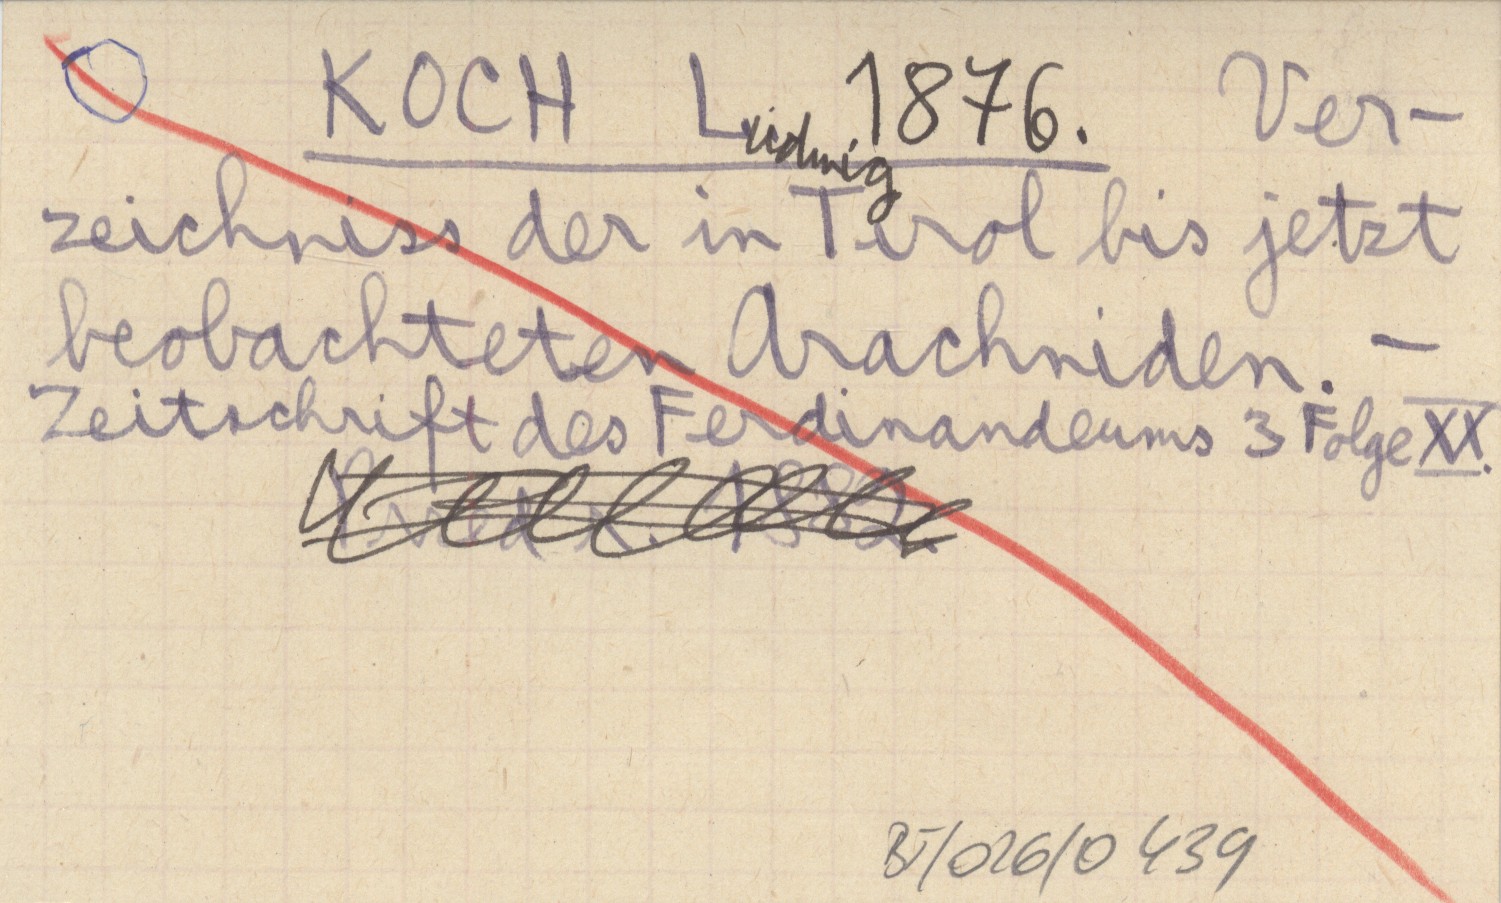 KOCH Ludwig 1876. Ver-
zeichniss der in Tirol bis jetzt
beobachteten Arachniden. -
Zeitschrift des Ferdinandeums 3 Folge XX.
1882.
BT/026/0439